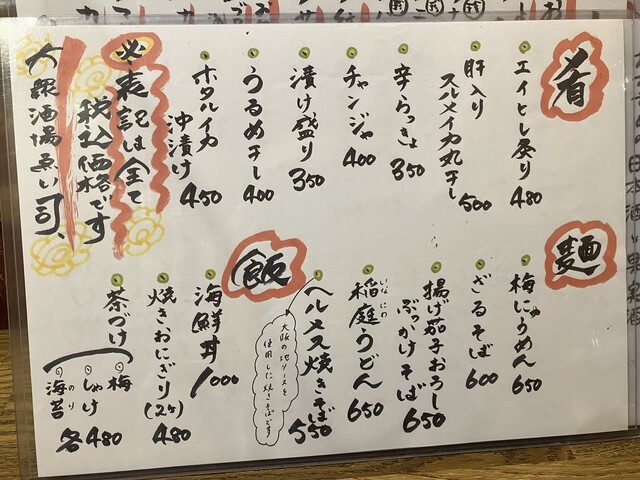 肴
エイヒレ炙り 480
肝入り
スルメイカ丸干し 500
辛らっきょ 350
チャンジャ 400
漬け盛り 350
うるめ干し 400
ホタルイカ
沖漬け 450
必 表記は全て
税込価格です
大衆酒場ゑい司、
麺
梅にゅうめん 650
ざるそば 600
揚げ茄子おろし
ぶっかけそば 650
稲庭うどん 650
いなにわ
ヘルメス焼きそば 550
大阪の地ソースを
使用した焼きそばです
飯
海鮮丼 1000
焼きおにぎり(2ケ) 480
茶づけ
梅
しゃけ
海苔
のり
各480